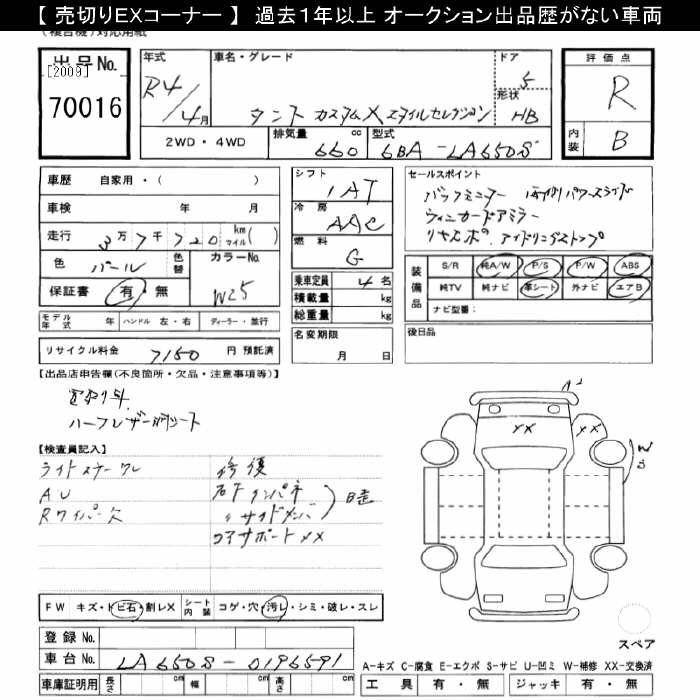 【 売切りEXコーナー 】 過去１年以上 オークション出品歴がない車両
（複合機）対応用紙
出品No.
[2009]
70016
年式
R4/4月
車名・グレード
タント カスタムX スタイルセレクション
ドア
5
形状
HB
2WD・4WD
排気量 660 cc
型式 6BA-LA650S
評価点
R
内装 B
車歴 自家用・( )
車検 年 月
走行 3万7千720 km マイル( )
色 パール
色替
カラーNo.
W25
保証書 有・無
モデル年式 年 ハンドル 左・右 ディーラー・並行
リサイクル料金 7150 円 預託済
シフト
IAT
冷房
AAC
燃料
G
乗車定員 4名
積載量 kg
総重量 kg
名変期限
月 日
セールスポイント
バックモニター 両側パワースライド
ウィンカードアミラー
リヤスポ、アイドリングストップ
装備品
S/R 純A/W P/S P/W ABS
純TV 純ナビ 革シート 外ナビ エアB
ナビ型番：
後日品
【出品店申告欄(不良箇所・欠品・注意事項等)】
買取り車
ハーフレザー調シート
【検査員記入】
ライトスケーワレ
AU
Rワイパー欠
修復
右F インパネ
〃 サイドメンバ
コアサポートXX
FW キズ・トビ石・割レX
シート内装 コゲ・穴・汚レ・シミ・破レ・スレ
登録No.
車台No. LA650S-0196591
車庫証明用 長さ cm 幅 cm 高さ cm
A2
XX XX
W
S
スペア
A-キズ C-腐食 E-エクボ S-サビ U-凹ミ W-補修 XX-交換済
工具 有・無 ジャッキ 有・無